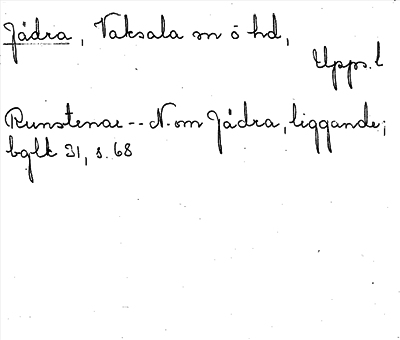 Jädra, Vaksala sn o hd,
Upps. l
Runstenar -- N. om Jädra, liggande;
bglk 31, s. 68